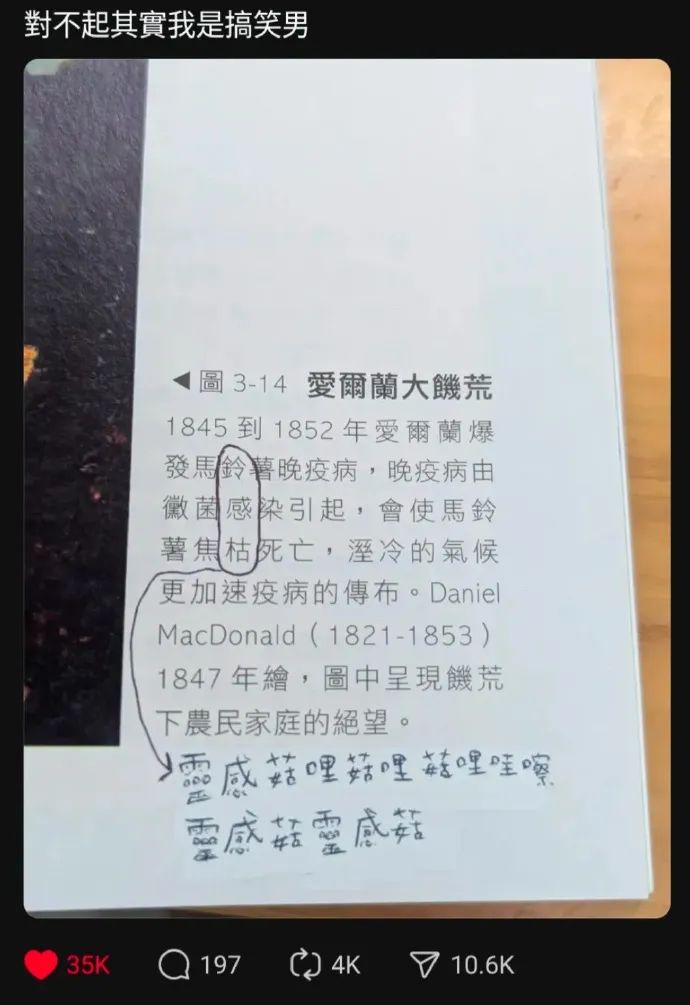 對不起其實我是搞笑男
◀圖 3-14 愛爾蘭大饑荒
1845 到 1852 年愛爾蘭爆
發馬鈴薯晚疫病，晚疫病由
黴菌感染引起，會使馬鈴
薯焦枯死亡，溼冷的氣候
更加速疫病的傳布。Daniel
MacDonald（1821-1853）
1847 年繪，圖中呈現饑荒
下農民家庭的絕望。
靈感菇哩菇哩菇哩哇嚓
靈感菇靈感菇
35K 197 4K 10.6K